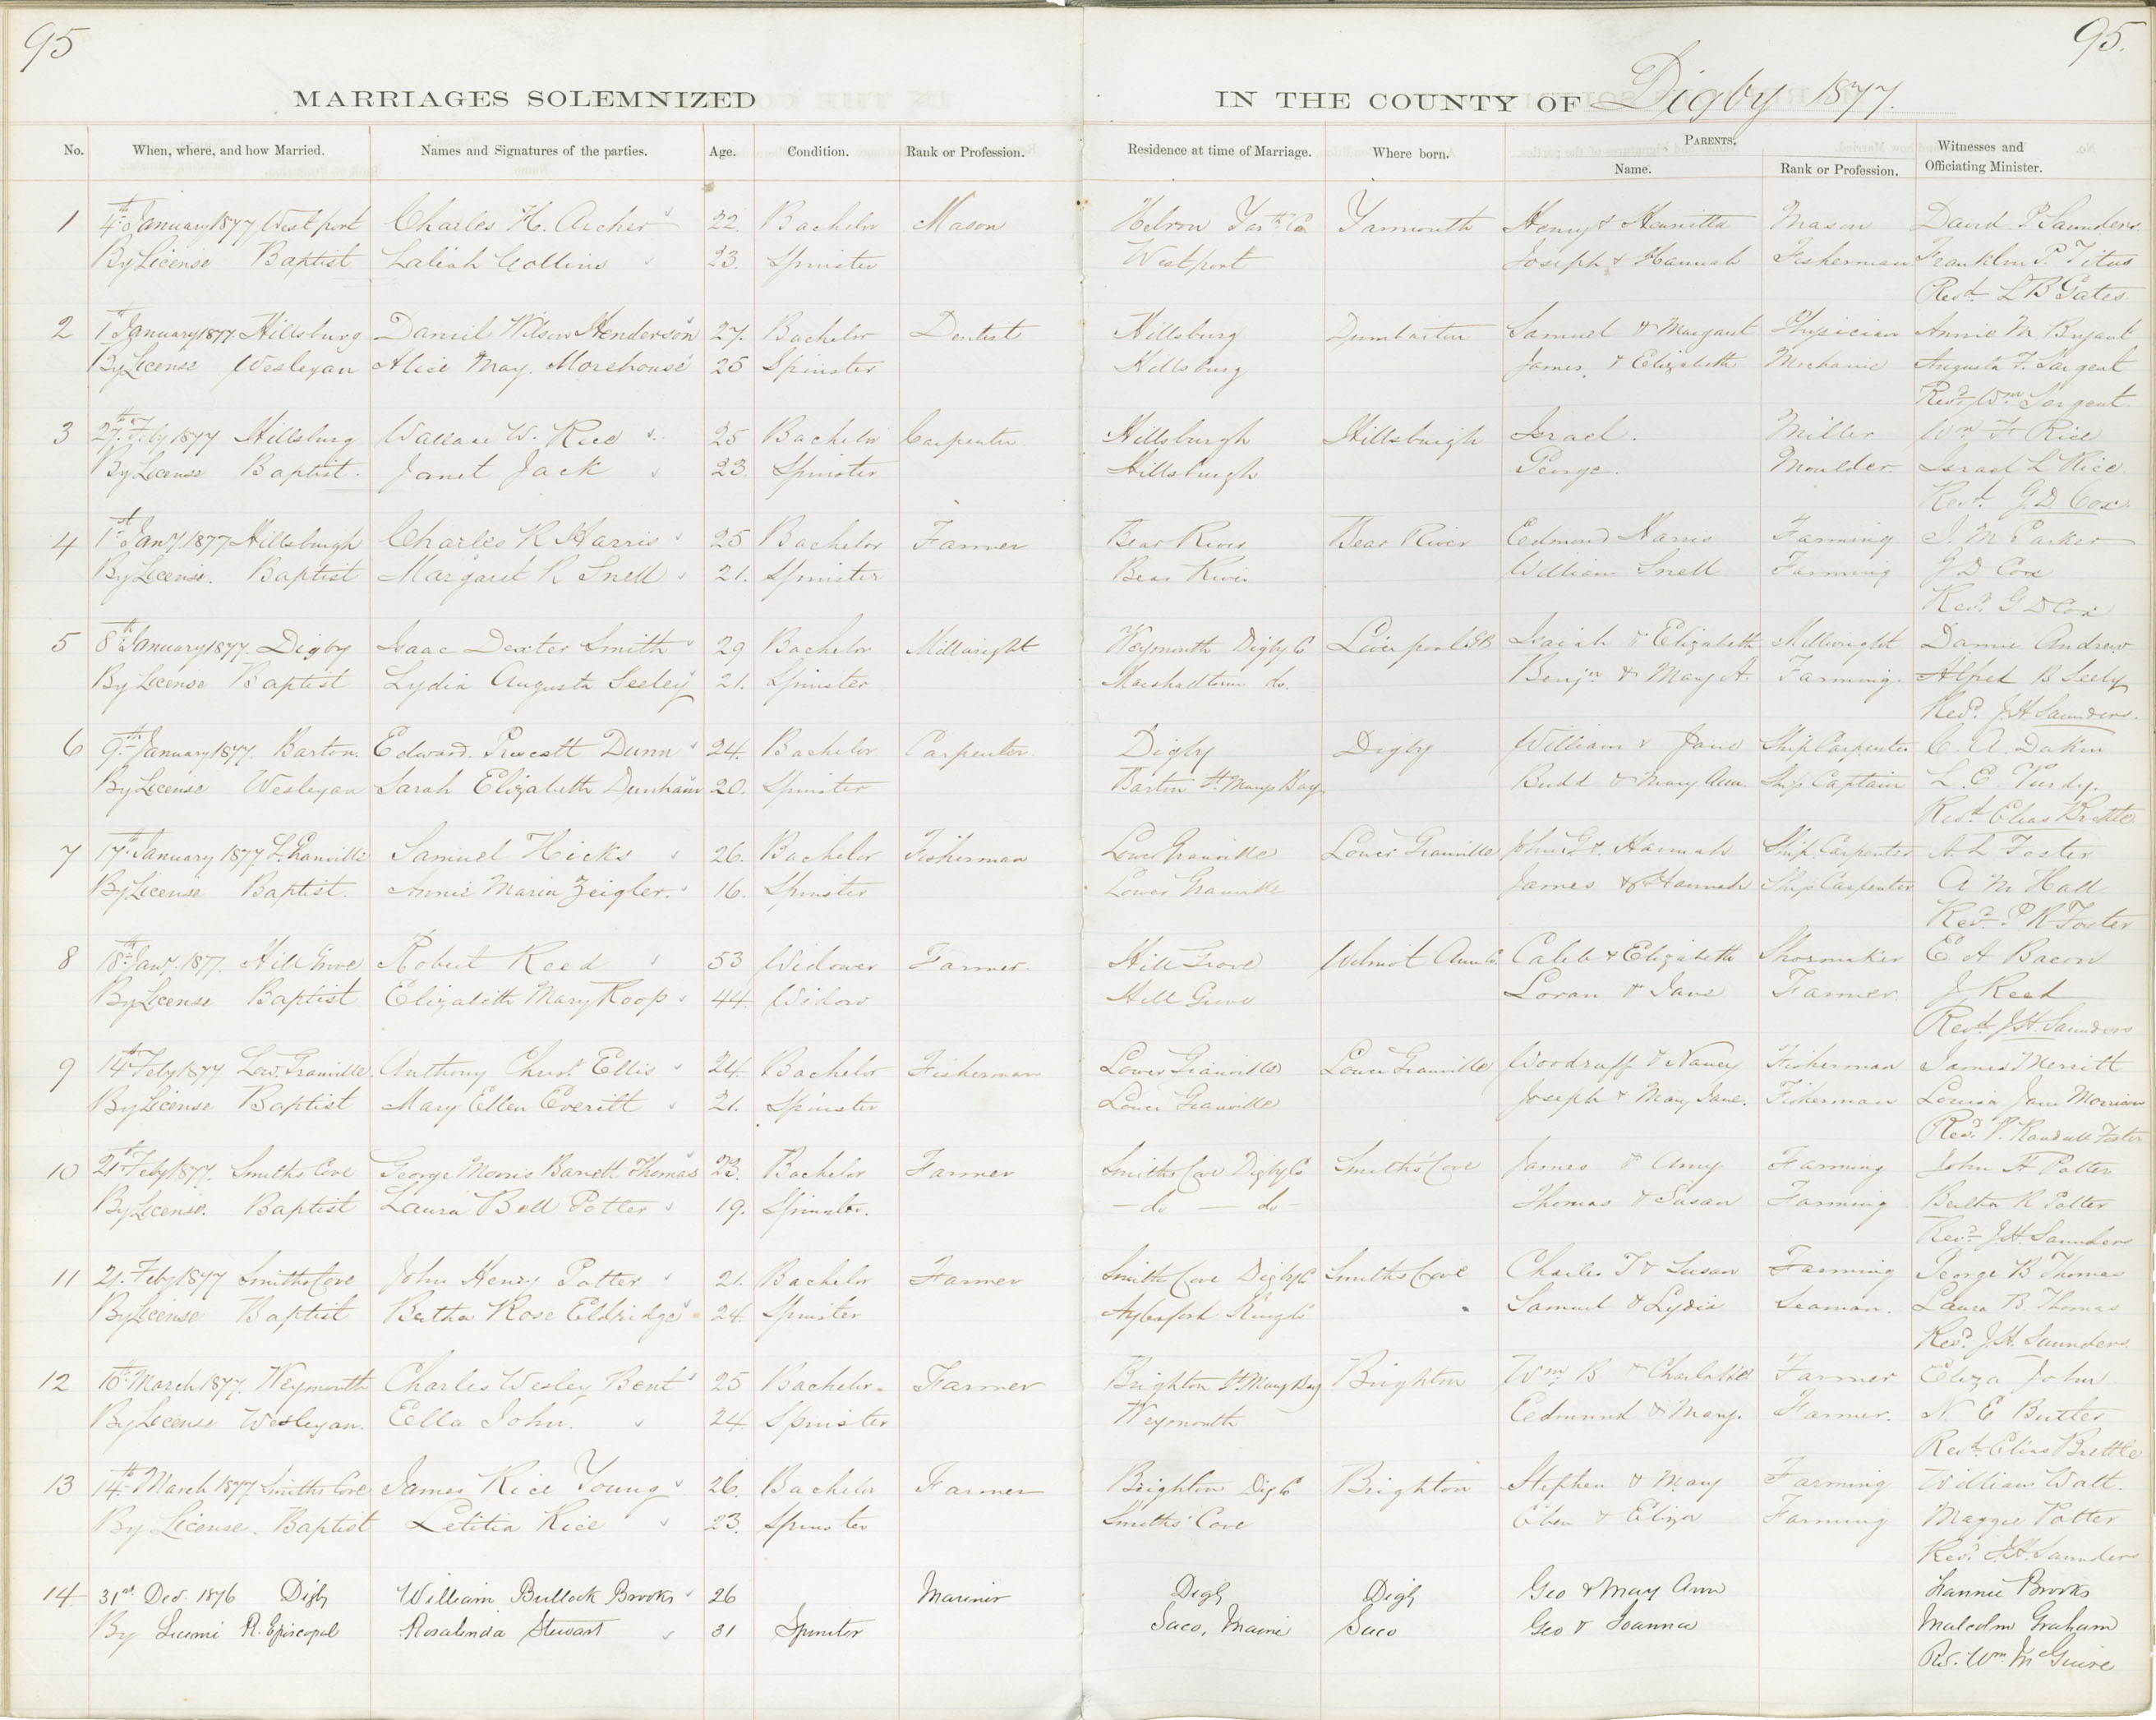 95
95.
MARRIAGES SOLEMNIZED IN THE COUNTY OF Digby 1877.
No. When, where, and how Married. Names and Signatures of the parties. Age. Condition. Rank or Profession. Residence at time of Marriage. Where born. PARENTS. Name. Rank or Profession. Witnesses and Officiating Minister.
1 4th January 1877 Westport Charles H. Archer 22. Bachelor Mason Hebron Yarth Co Yarmouth Henry & Henrietta Mason David P Saunders
By License Baptist Laliah Collins 23. Spinster Westport Joseph & Hannah Fisherman Franklin P. Titus
Revd L B Gates
2 1st January 1877. Hillsburg Daniel Wilson Henderson 27. Bachelor Dentist Hillsburg Dumbarton Samuel & Margaret Physician Annie M Bryant
By License Wesleyan Alice May Morehouse 25 Spinster Hillsburg James & Elizabeth Mechanic Augusta F. Sargent
Revd Wm Sargent.
3 27th Feby 1877 Hillsburg Wallace W. Rice 25 Bachelor Carpenter Hillsburgh Hillsburgh Israel. Miller Wm F Rice
By License Baptist. Janet Jack 23. Spinster Hillsburgh George. Moulder. Israel L Rice
Revd. G D Cox
4 1st Jany 1877 Hillsburgh Charles R Harris 25 Bachelor Farmer Bear River Bear River Edmond Harris Farming J. M Parker
By License. Baptist Margaret R Snell 21. Spinster Bear River William Snell Farming G D Cox
Revd. G D Cox
5 8th January 1877. Digby Isaac Dexter Smith 29 Bachelor Millwright Weymouth Digby Co Liverpool GB Isaiah & Elizabeth Millwright Andrew
By License Baptist Lydia Augusta Seeley 21. Spinster Marshalltown do. Benjn & Mary A. Farming. Alfred B Seely
Revd. J.H. Saunders.
6 9th January 1877. Barton. Edward Prescott Dunn 24. Bachelor Carpenter. Digby Digby William & Jane Ship Carpenter C. A. Dakin
By License Wesleyan Sarah Elizabeth Dunham 20. Spinster Barton St Marys Bay Budd & Mary Ann. Ship Captain L. E. Purdy.
Revd. Elias Brettle
7 17th January 1877. L. Granville Samuel Hicks 26. Bachelor Fisherman Lower Granville Lower Granville John G & Hannah Ship Carpenter A. L Foster
By License Baptist. Annie Maria Zeigler. 16. Spinster Lower Granville James & Hannah Ship Carpenter A M Hall
Revd. P R Foster
8 18th Jany. 1877. Hill Grove Robert Reed 53 Widower Farmer. Hill Grove Wilmot Ann Co. Caleb & Elizabeth Shoemaker E A Bacon
By License Baptist Elizabeth Mary Koop 44. Widow Hill Grove Loran & Jane Farmer. J Reed
Revd J.H. Saunders
9 14th Feby 1877 Low. Granville. Anthony Chust Ellis 24. Bachelor Fisherman Lower Granville Lower Granville Woodruff & Nancy Fisherman James Merritt
By License Baptist Mary Ellen Everitt 21. Spinster Lower Granville Joseph & Mary Jane. Fisherman Louisa Jane Morrison
Revd. P. Randall Foster
10 21st Feby 1877. Smiths Cove George Morris Barrett Thomas 23. Bachelor Farmer Smiths Cove Digby Co Smiths' Cove James & Amy Farming John H Potter
By License. Baptist Laura Bell Potter 19. Spinster. — do — do — Thomas & Susan Farming Bertha R Potter
Revd. J.H Saunders
11 21. Feby 1877 Smiths Cove John Henry Potter 21. Bachelor Farmer Smiths Cove Digby Co Smiths Cove Charles T & Susan Farming George B Thomas
By License Baptist Bertha Rose Eldridge 24. Spinster Aylesford Kings Co Samuel & Lydia Seaman. Laura B. Thomas
Revd. J.H. Saunders
12 10th March 1877. Weymouth Charles Wesley Bent 25 Bachelor. Farmer Brighton St Marys Bay Brighton Wm B & Charlotte Farmer Eliza John
By License Wesleyan. Ella John. 24 Spinster Weymouth Edmund & Mary. Farmer. N. E Butler
Revd. Elias Brettle
13 14th March 1877 Smiths Cove James Rice Young 26. Bachelor Farmer Brighton Dig Co Brighton Stephen & Mary Farming William Watt.
By License. Baptist Letitia Rice 23. Spinster Smiths' Cove Eben & Eliza Farming Maggie Potter
Revd. J.H. Saunders
14 31st Dec. 1876 Digby William Bullock Brooks 26 Mariner Digby Digby Geo & Mary Ann Fannie Brooks
By License R. Episcopal Rosalinda Stewart 31 Spinster Saco, Maine Saco Geo & Joanna Malcolm Graham
Rev. Wm McGuire